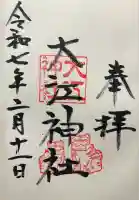 奉拝
大江神社
令和七年二月十一日